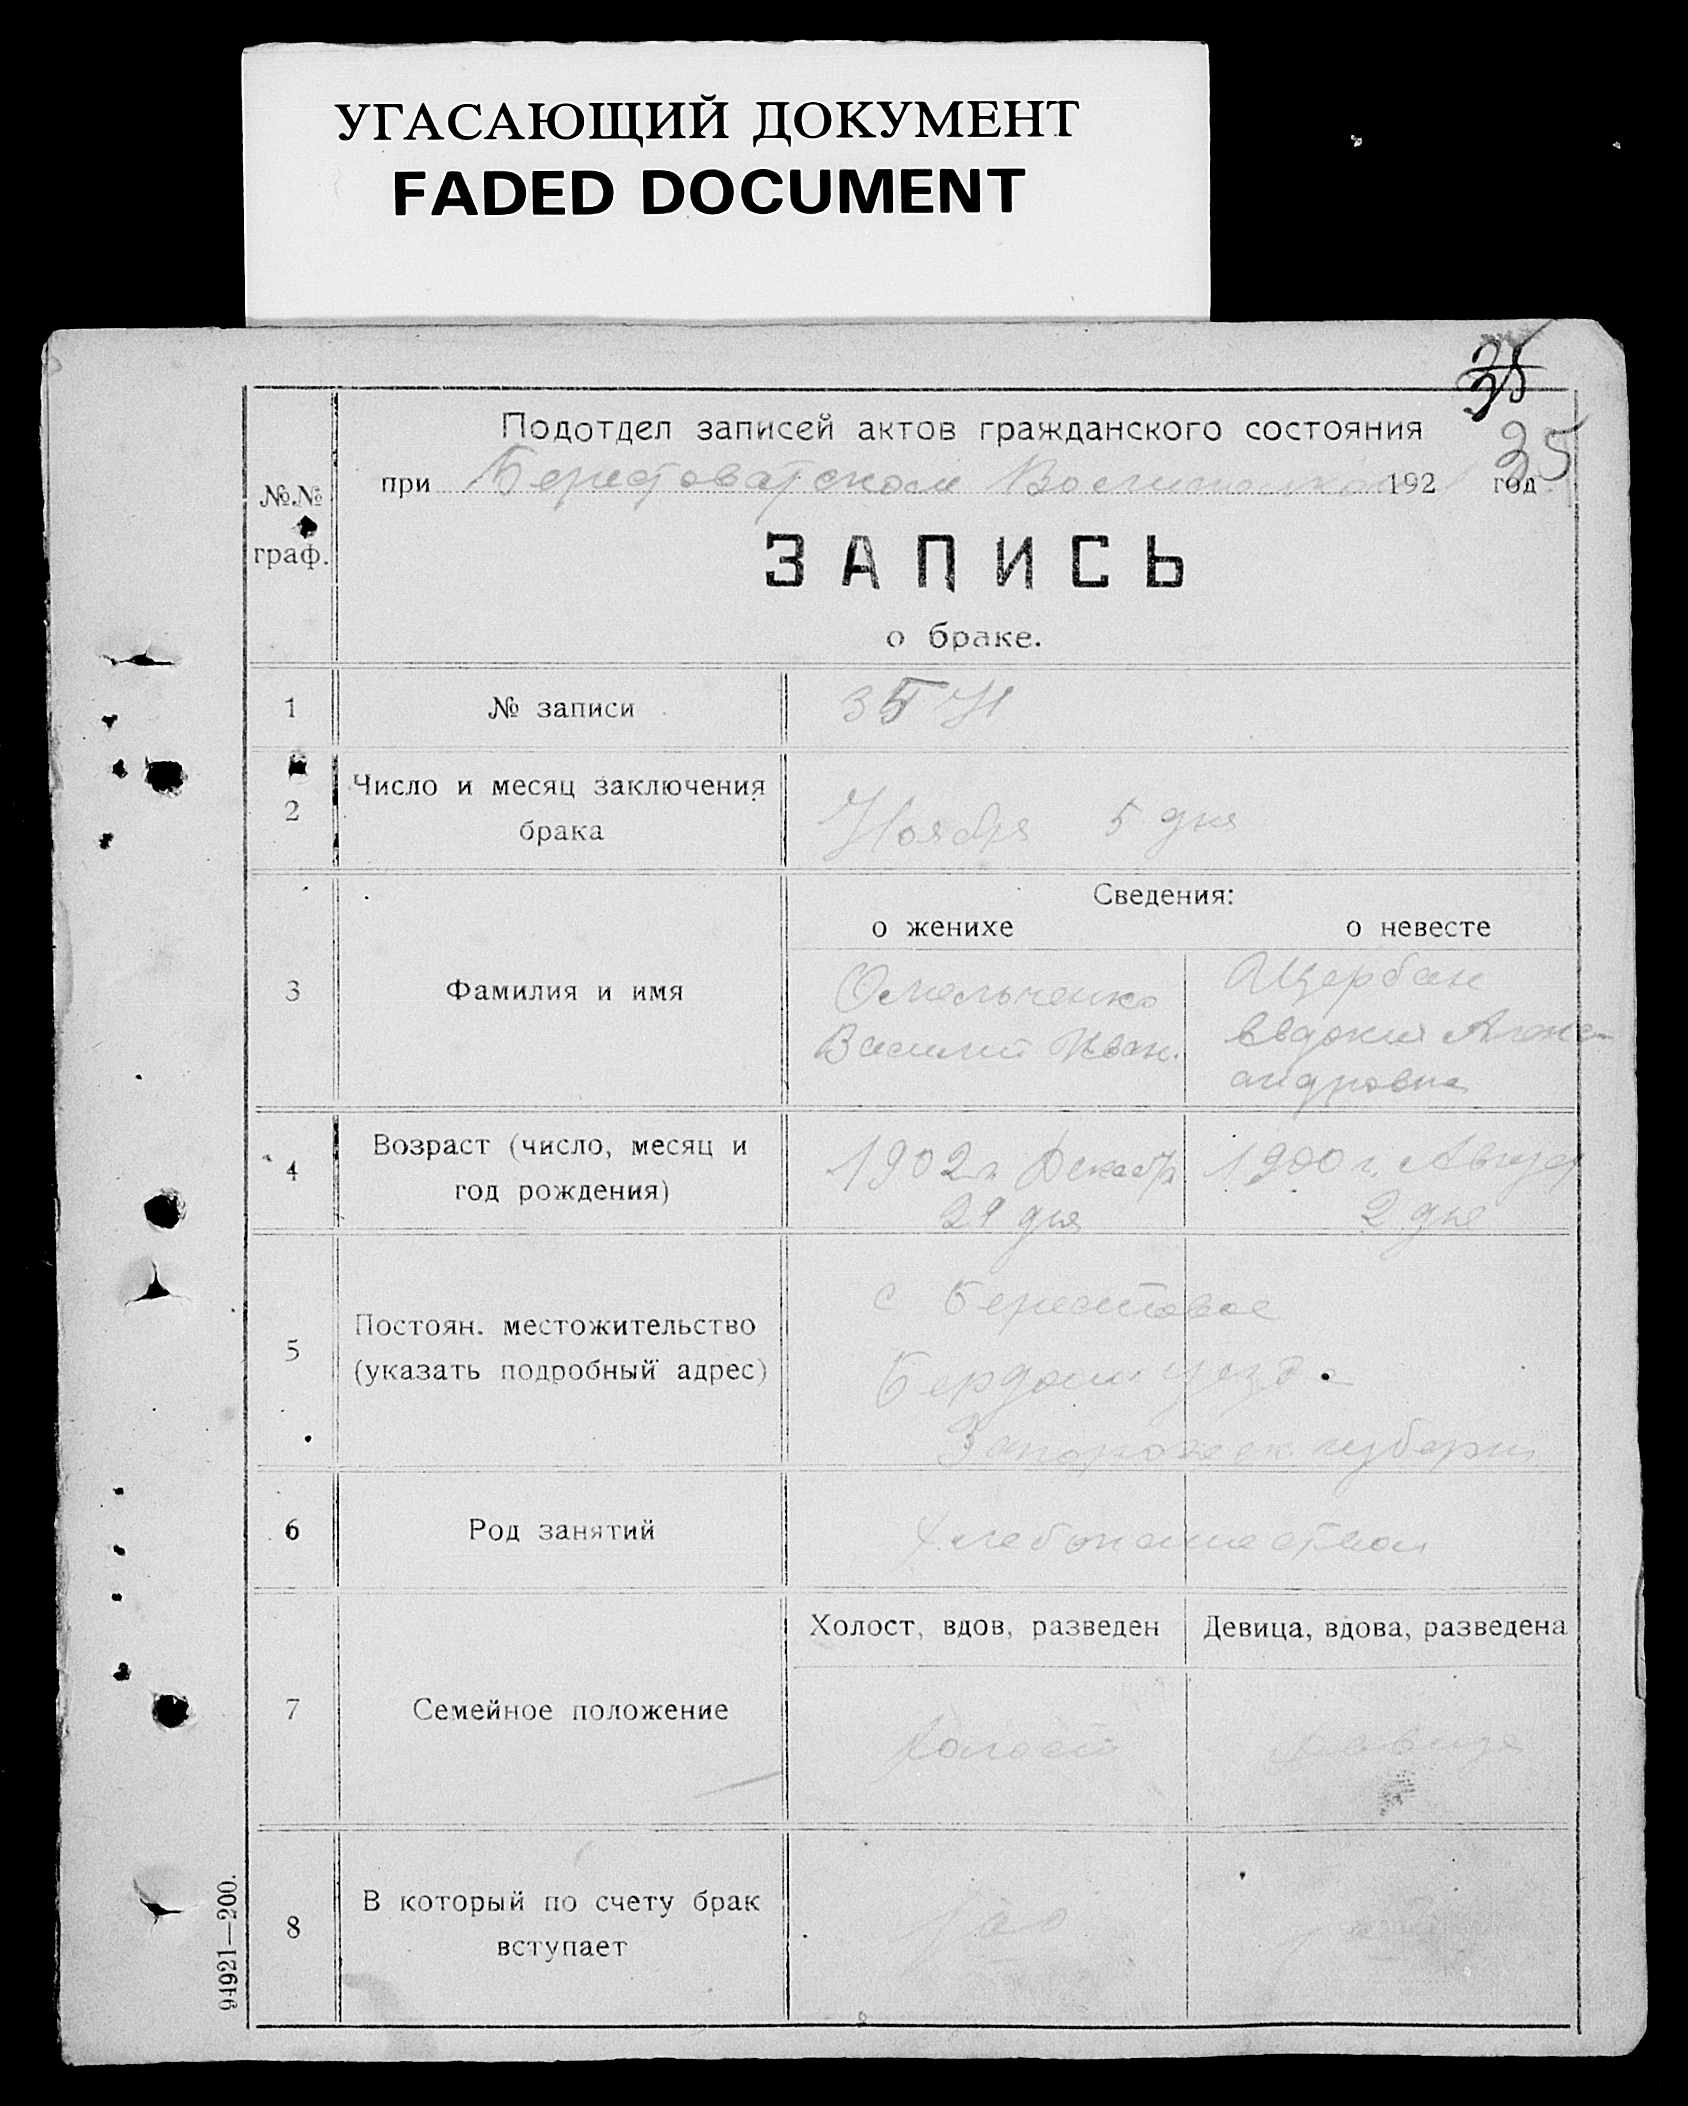 УГАСАЮЩИЙ ДОКУМЕНТ
FADED DOCUMENT
35
Подотдел записей актов гражданского состояния
35
№№ граф.
при Берестоватском 192 год
ЗАПИСЬ
о браке.
1 № записи 35
2 Число и месяц заключения брака Ноября 5 дня
Сведения:
о женихе о невесте
3 Фамилия и имя
Омельченко
Василий Иван.
Щербак
Евдокия Алекс-
андровна
4 Возраст (число, месяц и год рождения)
1902 г. Декабр
29 дня
1900 г. Август
2 дня
5 Постоян. местожительство (указать подробный адрес)
с Берестовое
Бердян уезда
Запорожск губерн
6 Род занятий
Хлебопашество
Холост, вдов, разведен Девица, вдова, разведена
7 Семейное положение
холост девица
8 В который по счету брак вступает
94921—200.